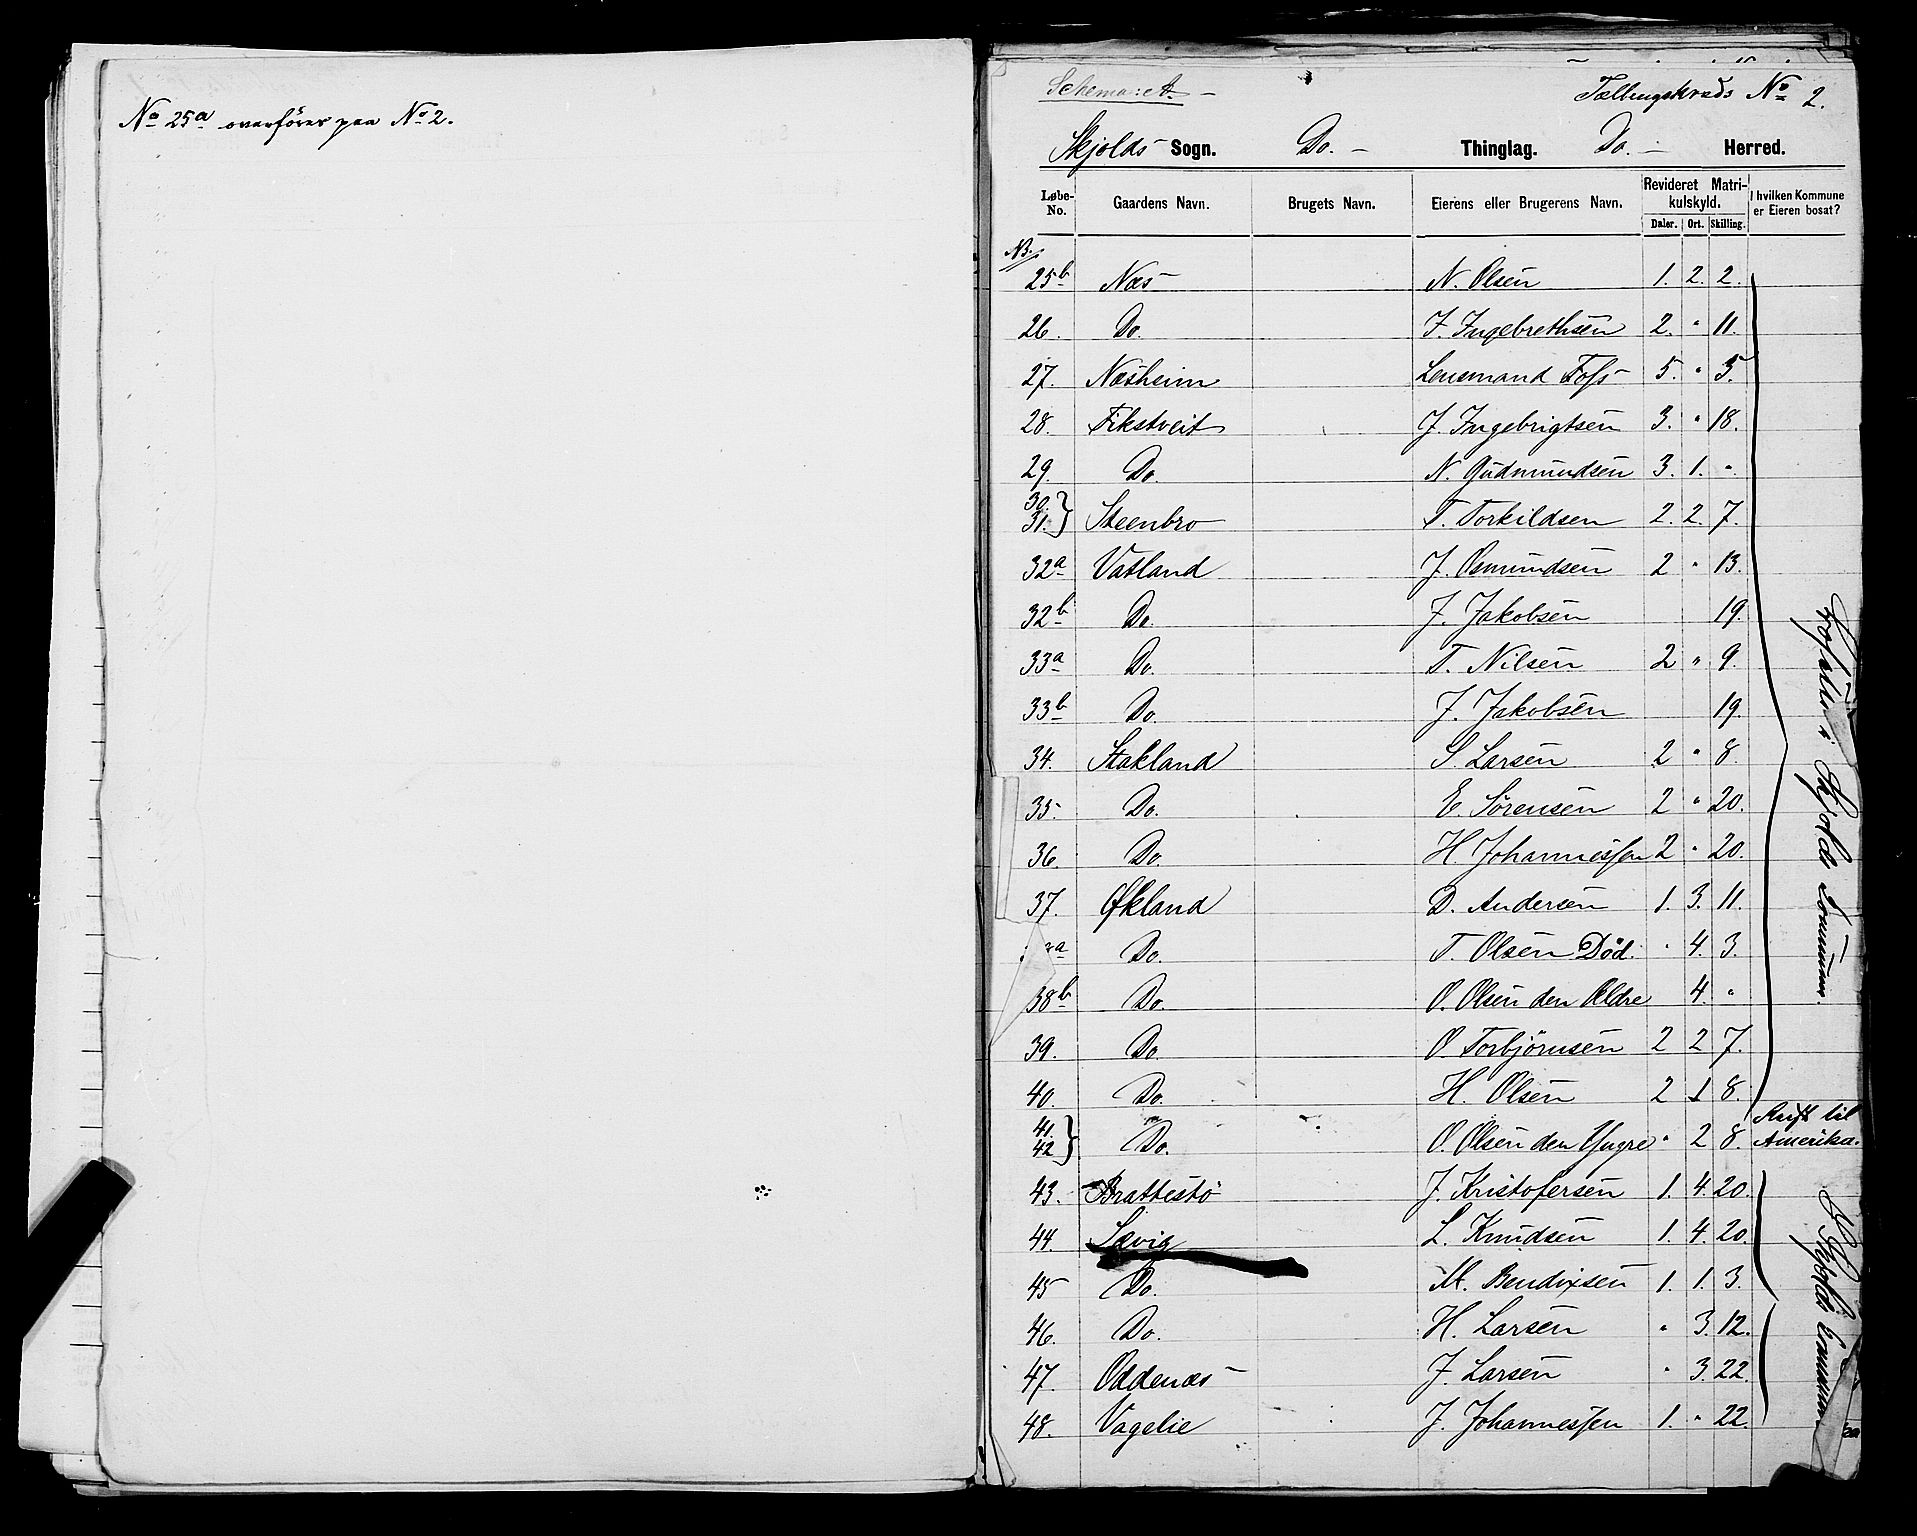 No 25a overføres paa No 2.
Schema: A. Tællingskreds No 2.
Skjolds Sogn. Do. Thinglag. Do. Herred.
Løbe-No. Gaardens Navn. Brugets Navn. Eierens eller Brugerens Navn. Revideret Matrikulskyld. I hvilken Kommune er Eieren bosat?
Daler. Ort. Skilling.
NB.
25b Næs N. Olsen 1. 2. 2.
26. Do. J. Ingebrethsen 2. " 11.
27. Næsheim Lensmand Foss 5. " 5.
28. Fikstveit J. Ingebrigtsen 3. " 18.
29. Do. N. Gudmundsen 3. 1. "
30. 31. } Steenbro T. Torkildsen 2. 2. 7.
32a Vatland J. Osmundsen 2 " 13.
32b Do. J. Jakobsen 19.
33a Do. T. Nilsen 2 " 9.
33b Do. J. Jakobsen 19.
34. Stakland S. Larsen 2 " 8.
35. Do. E. Sørensen 2 " 20.
36. Do. H. Johannessen 2 " 20.
37. Økland D. Andersen 1. 3. 11.
a Do. T. Olsen Død. " 4. 3.
38b Do. O. Olsen den Ældre 4. "
39. Do. O. Torbjørnsen 2 2 7.
40. Do. H. Olsen 2 1 8.
41. 42 } Do. O. Olsen den Yngre " 2 8. Reist til Amerika.
43. Brattestø J. Kristofersen 1. 4. 20.
44. Sævig L. Knudsen 1. 4. 20.
45 Do. M. Bendixsen 1. 1. 3.
46. Do. H. Larsen " 3. 12.
47. Oddenæs J. Larsen " 3. 22.
48. Vagelie J. Johannessen 1. " 22.
i Skjolds Kommune.
Skjolds